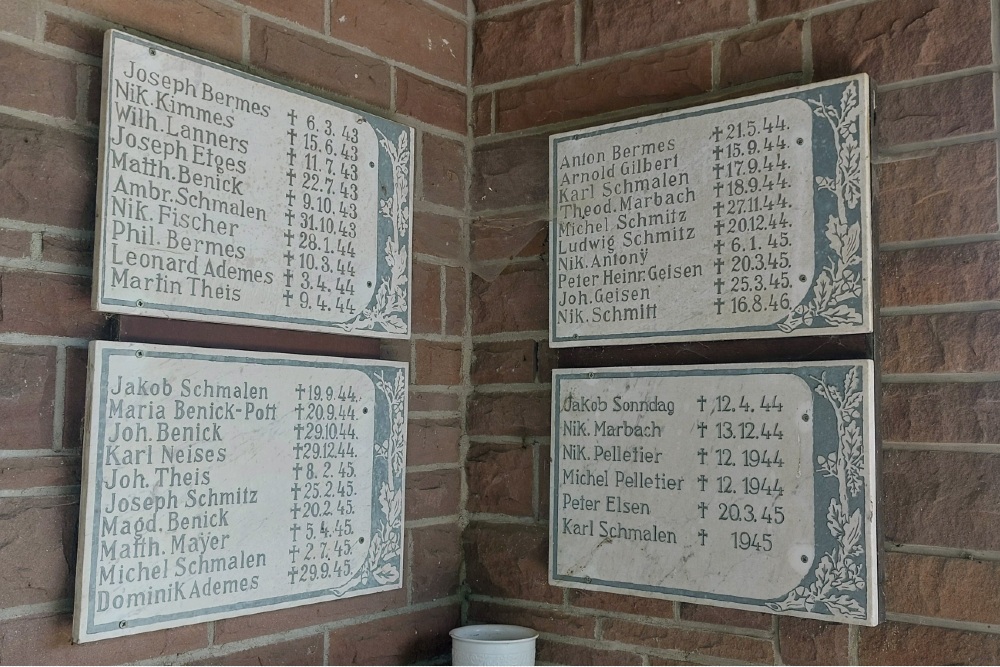 Joseph Bermes † 6.3.43
Nik. Kimmes † 15.6.43
Wilh. Lanners † 11.7.43
Joseph Etges † 22.7.43
Matth. Benick † 9.10.43
Ambr. Schmalen † 31.10.43
Nik. Fischer † 28.1.44
Phil. Bermes † 10.3.44
Leonard Ademes † 3.4.44
Martin Theis † 9.4.44
Jakob Schmalen † 19.9.44.
Maria Benick-Pott † 20.9.44.
Joh. Benick † 29.10.44.
Karl Neises † 29.12.44.
Joh. Theis † 8.2.45.
Joseph Schmitz † 25.2.45.
Magd. Benick † 20.2.45.
Matth. Mayer † 5.4.45.
Michel Schmalen † 2.7.45.
Dominik Ademes † 29.9.45.
Anton Bermes † 21.5.44.
Arnold Gilbert † 15.9.44.
Karl Schmalen † 17.9.44.
Theod. Marbach † 18.9.44.
Michel Schmitz † 27.11.44.
Ludwig Schmitz † 20.12.44.
Nik. Antony † 6.1.45.
Peter Heinr. Geisen † 20.3.45.
Joh. Geisen † 25.3.45.
Nik. Schmitt † 16.8.46
Jakob Sonndag † 12.4.44
Nik. Marbach † 13.12.44
Nik. Pelletier † 12.1944
Michel Pelletier † 12.1944
Peter Elsen † 20.3.45
Karl Schmalen † 1945